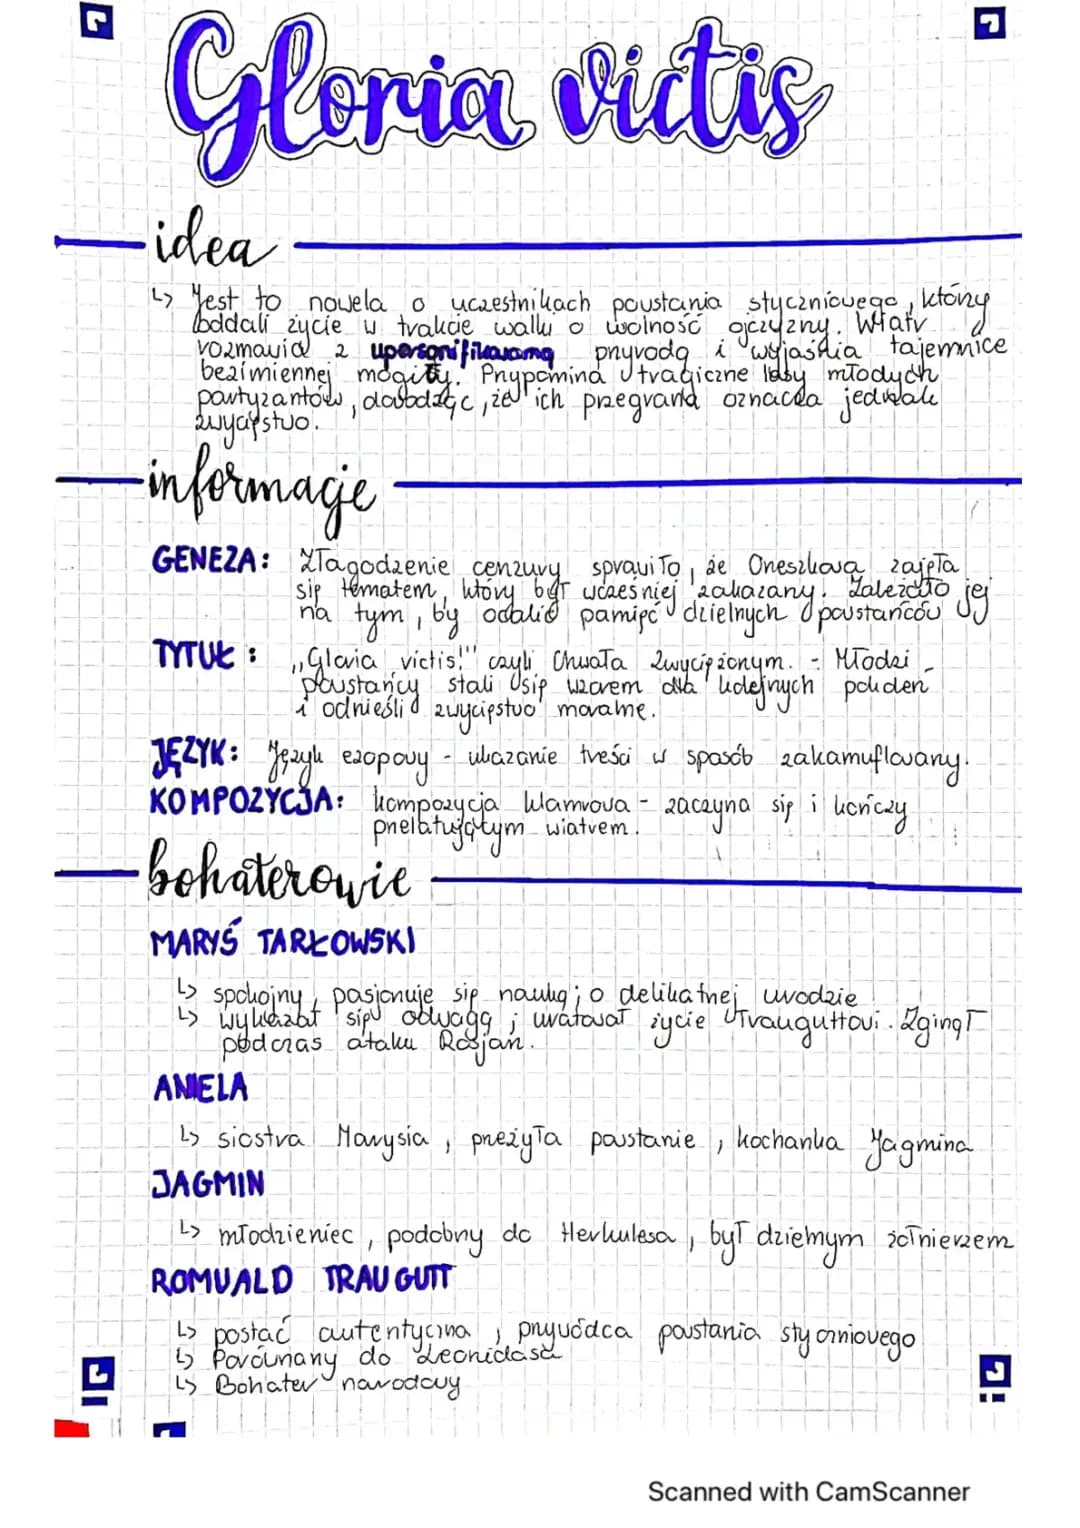 Gloria victis
idea
↳ Jest to nowela o uczestnikach powstania styczniowego, którzy
oddali życie w trakcie walki o wolność ojczyzny. Wiatr
rozmawia z upersonifikowaną przyrodą i wyjaśnia tajemnice
bezimiennej mogiły. Przypomina tragiczne losy młodych
partyzantów, dowodząc, że ich przegrana oznacza jednak
zwycięstwo.
informacje
GENEZA: Złagodzenie cenzury sprawiło, że Orzeszkowa zajęła
się tematem, który był wcześniej zakazany. Zależało jej
na tym, by ocalić pamięć dzielnych powstańców
TYTUŁ: „Gloria victis!" czyli Chwała Zwyciężonym. - Młodzi
powstańcy stali się wzorem dla kolejnych pokoleń
i odnieśli zwycięstwo moralne.
JĘZYK: Język ezopowy - ukazanie treści w sposób zakamuflowany.
KOMPOZYCJA: kompozycja klamrowa - zaczyna się i kończy
przelatującym wiatrem.
bohaterowie
MARYŚ TARŁOWSKI
↳ spokojny, pasjonuje się nauką; o delikatnej urodzie
↳ wykazał się odwagą; uratował życie Trauguttowi. Zginął
podczas ataku Rosjan.
ANIELA
↳ siostra Marysia, przeżyła powstanie, kochanka Jagmina
JAGMIN
↳ młodzieniec, podobny do Herkulesa, był dzielnym żołnierzem
ROMUALD TRAUGUTT
↳ postać autentyczna, przywódca powstania styczniowego
↳ Porównany do Leonidasa
↳ Bohater narodowy
Scanned with CamScanner